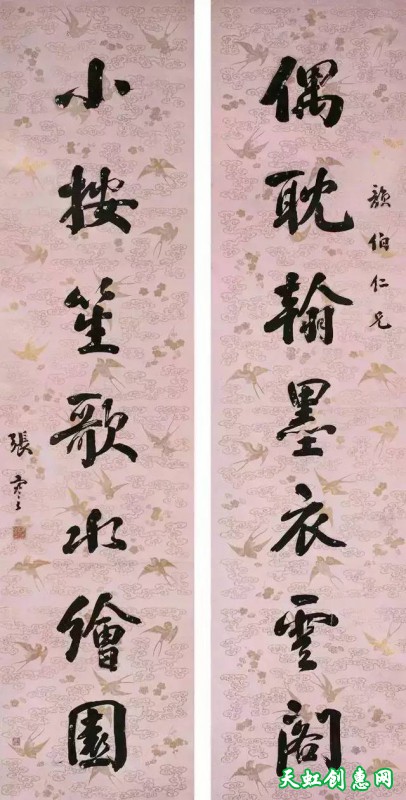 偶耽翰墨衣雲閣
韻伯仁兄
小按笙歌水繪園
張謇
天虹创惠网